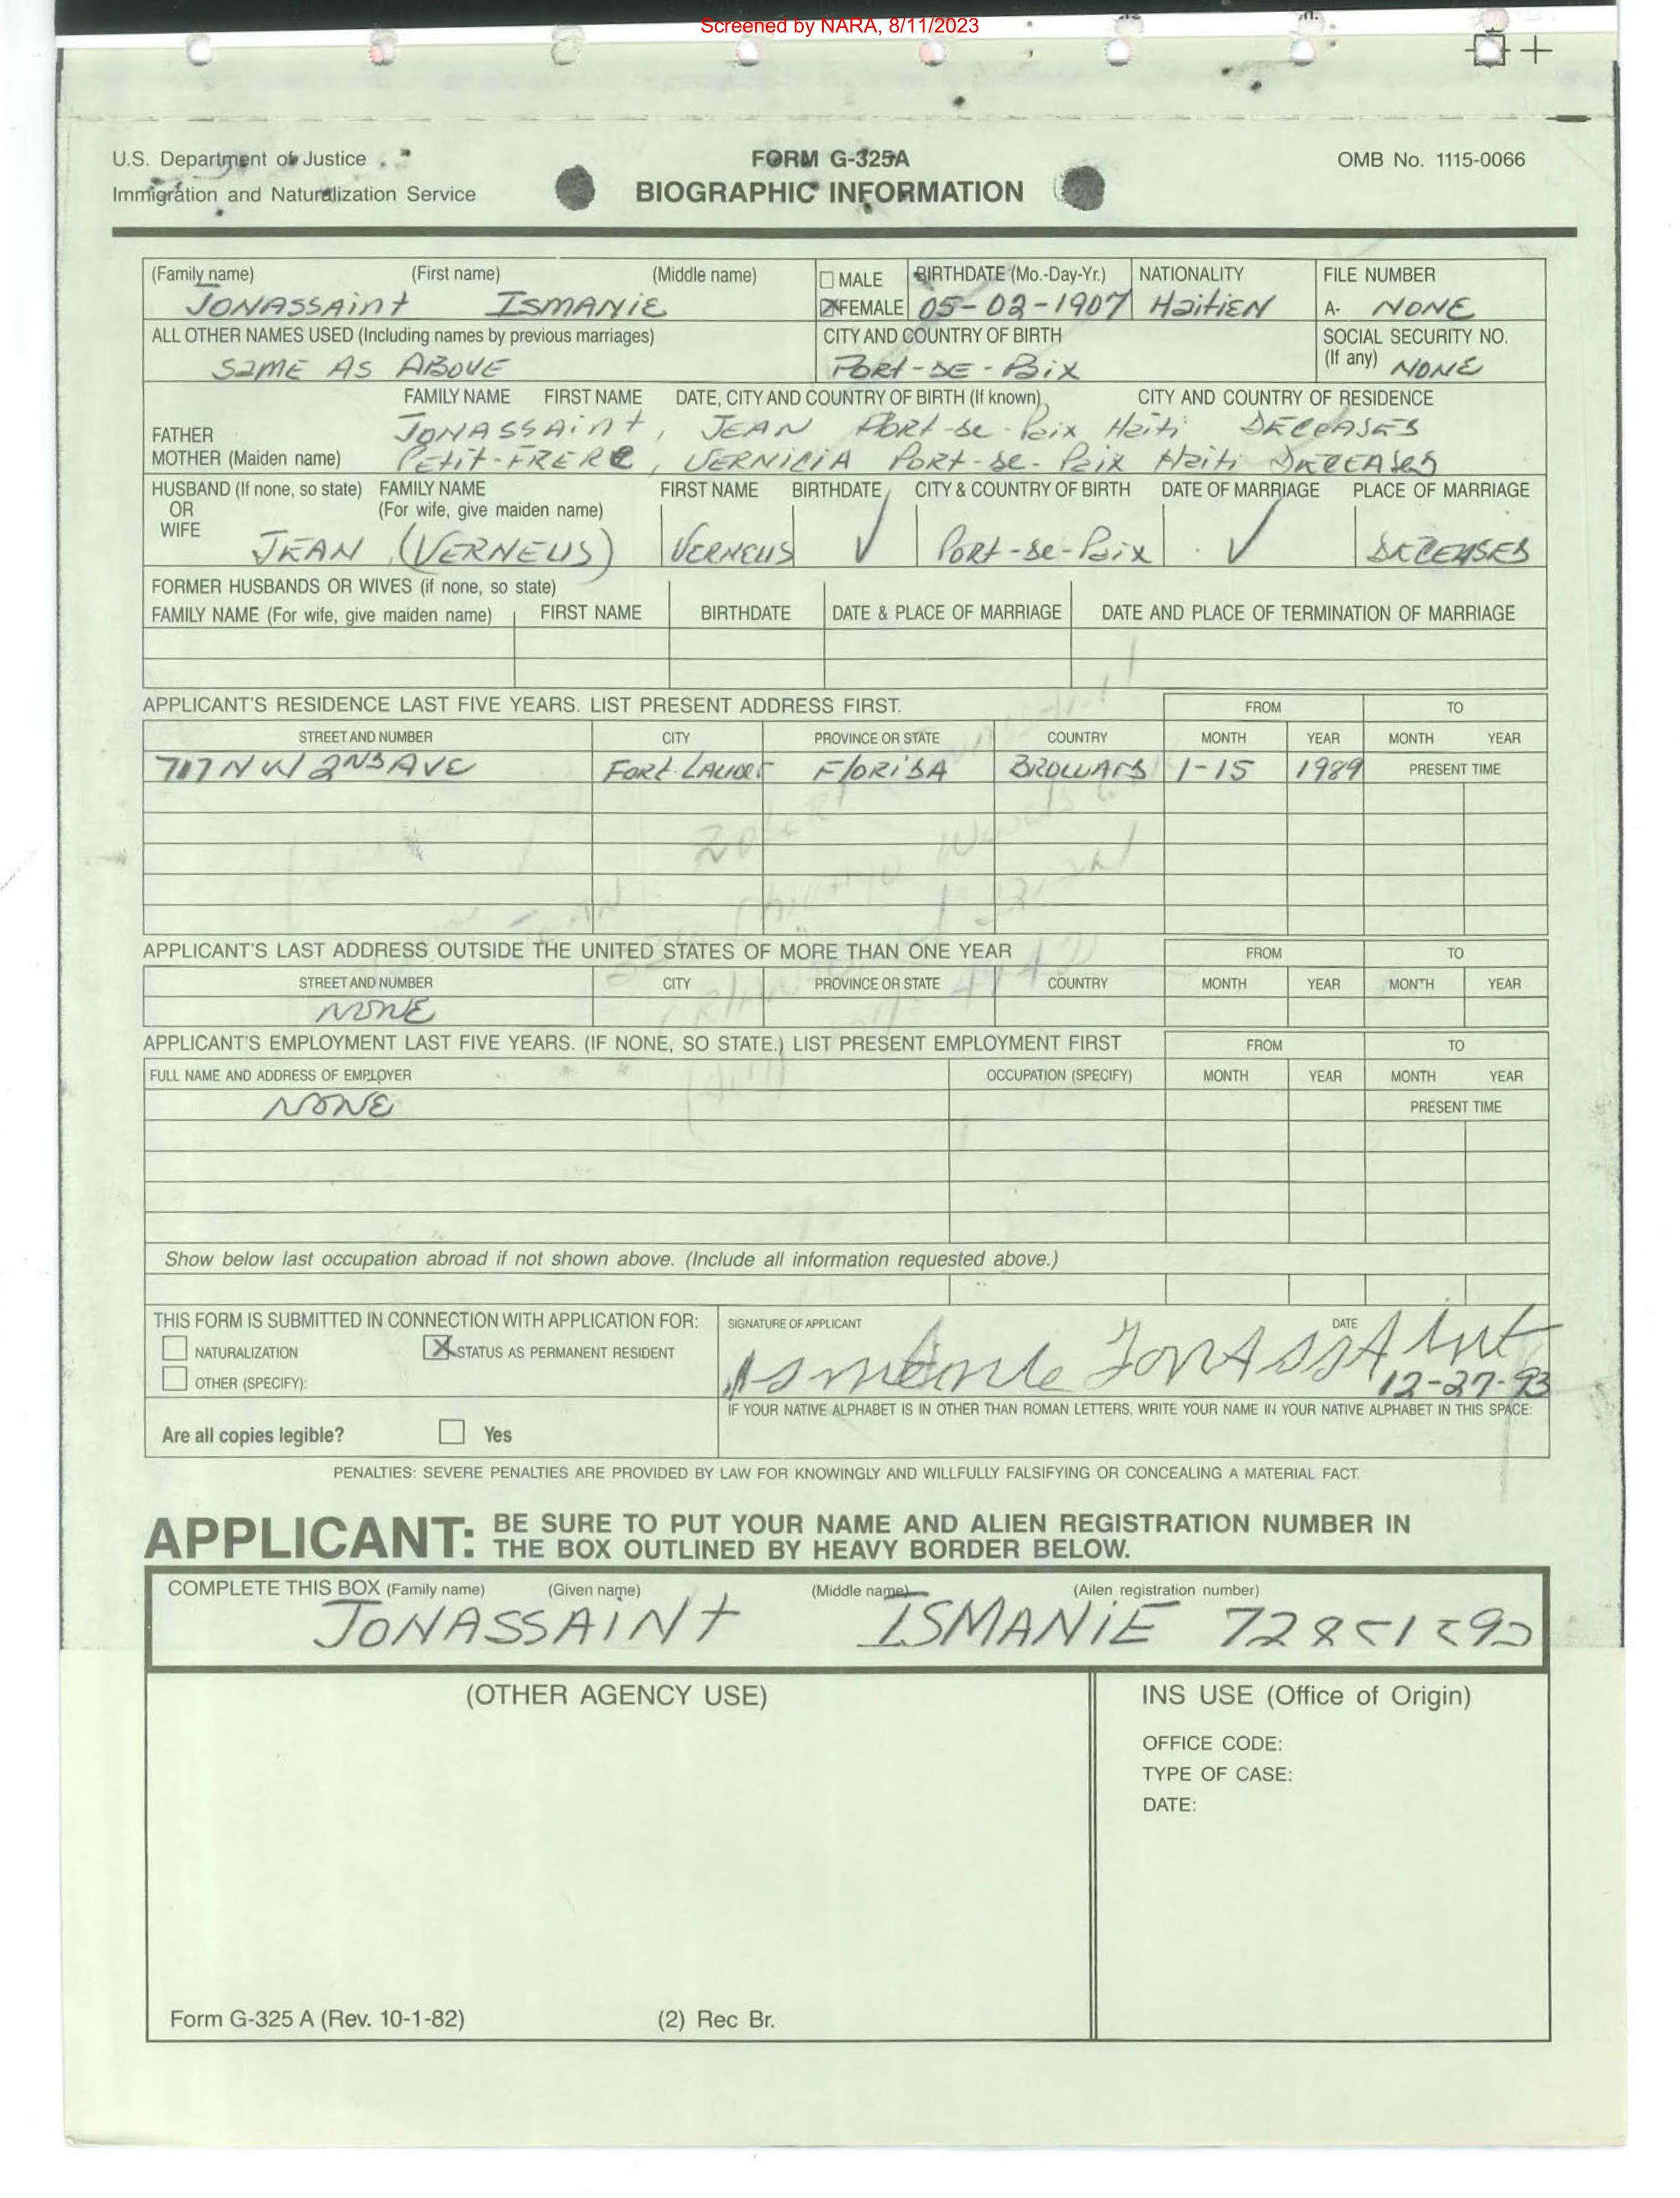 Screened by NARA, 8/11/2023
U.S. Department of Justice
Immigration and Naturalization Service
FORM G-325A
BIOGRAPHIC INFORMATION
OMB No. 1115-0066
(Family name) (First name) (Middle name) MALE BIRTHDATE (Mo.-Day-Yr.) NATIONALITY FILE NUMBER
JONASSAint ISMANiE FEMALE 05-02-1907 HaitiEN A- NONE
ALL OTHER NAMES USED (Including names by previous marriages) CITY AND COUNTRY OF BIRTH SOCIAL SECURITY NO.
SAME AS ABOVE PORT-DE-PAIX (If any) NONE
FAMILY NAME FIRST NAME DATE, CITY AND COUNTRY OF BIRTH (If known) CITY AND COUNTRY OF RESIDENCE
FATHER JONASSAint, JEAN PORt-de-Paix Haiti DECEASED
MOTHER (Maiden name) PEtit-FRERE, VERNICIA PORt-de-Paix Haiti DECEASED
HUSBAND (If none, so state) FAMILY NAME FIRST NAME BIRTHDATE CITY & COUNTRY OF BIRTH DATE OF MARRIAGE PLACE OF MARRIAGE
OR (For wife, give maiden name)
WIFE JEAN (VERNEUS) VERNEUS ✓ PORt-de-Paix ✓ DECEASED
FORMER HUSBANDS OR WIVES (if none, so state)
FAMILY NAME (For wife, give maiden name) FIRST NAME BIRTHDATE DATE & PLACE OF MARRIAGE DATE AND PLACE OF TERMINATION OF MARRIAGE
APPLICANT'S RESIDENCE LAST FIVE YEARS. LIST PRESENT ADDRESS FIRST. FROM TO
STREET AND NUMBER CITY PROVINCE OR STATE COUNTRY MONTH YEAR MONTH YEAR
717 NW 2ND AVE FORt LAUDER FloRiDA BROWARD 1-15 1989 PRESENT TIME
APPLICANT'S LAST ADDRESS OUTSIDE THE UNITED STATES OF MORE THAN ONE YEAR FROM TO
STREET AND NUMBER CITY PROVINCE OR STATE COUNTRY MONTH YEAR MONTH YEAR
NONE
APPLICANT'S EMPLOYMENT LAST FIVE YEARS. (IF NONE, SO STATE.) LIST PRESENT EMPLOYMENT FIRST FROM TO
FULL NAME AND ADDRESS OF EMPLOYER OCCUPATION (SPECIFY) MONTH YEAR MONTH YEAR
NONE PRESENT TIME
Show below last occupation abroad if not shown above. (Include all information requested above.)
THIS FORM IS SUBMITTED IN CONNECTION WITH APPLICATION FOR: SIGNATURE OF APPLICANT DATE
NATURALIZATION X STATUS AS PERMANENT RESIDENT JonASSAint
OTHER (SPECIFY): 12-27-93
IF YOUR NATIVE ALPHABET IS IN OTHER THAN ROMAN LETTERS, WRITE YOUR NAME IN YOUR NATIVE ALPHABET IN THIS SPACE:
Are all copies legible? Yes
PENALTIES: SEVERE PENALTIES ARE PROVIDED BY LAW FOR KNOWINGLY AND WILLFULLY FALSIFYING OR CONCEALING A MATERIAL FACT.
APPLICANT: BE SURE TO PUT YOUR NAME AND ALIEN REGISTRATION NUMBER IN
THE BOX OUTLINED BY HEAVY BORDER BELOW.
COMPLETE THIS BOX (Family name) (Given name) (Middle name) (Ailen registration number)
JONASSAINt ISMANiE
(OTHER AGENCY USE) INS USE (Office of Origin)
OFFICE CODE:
TYPE OF CASE:
DATE:
Form G-325 A (Rev. 10-1-82) (2) Rec Br.